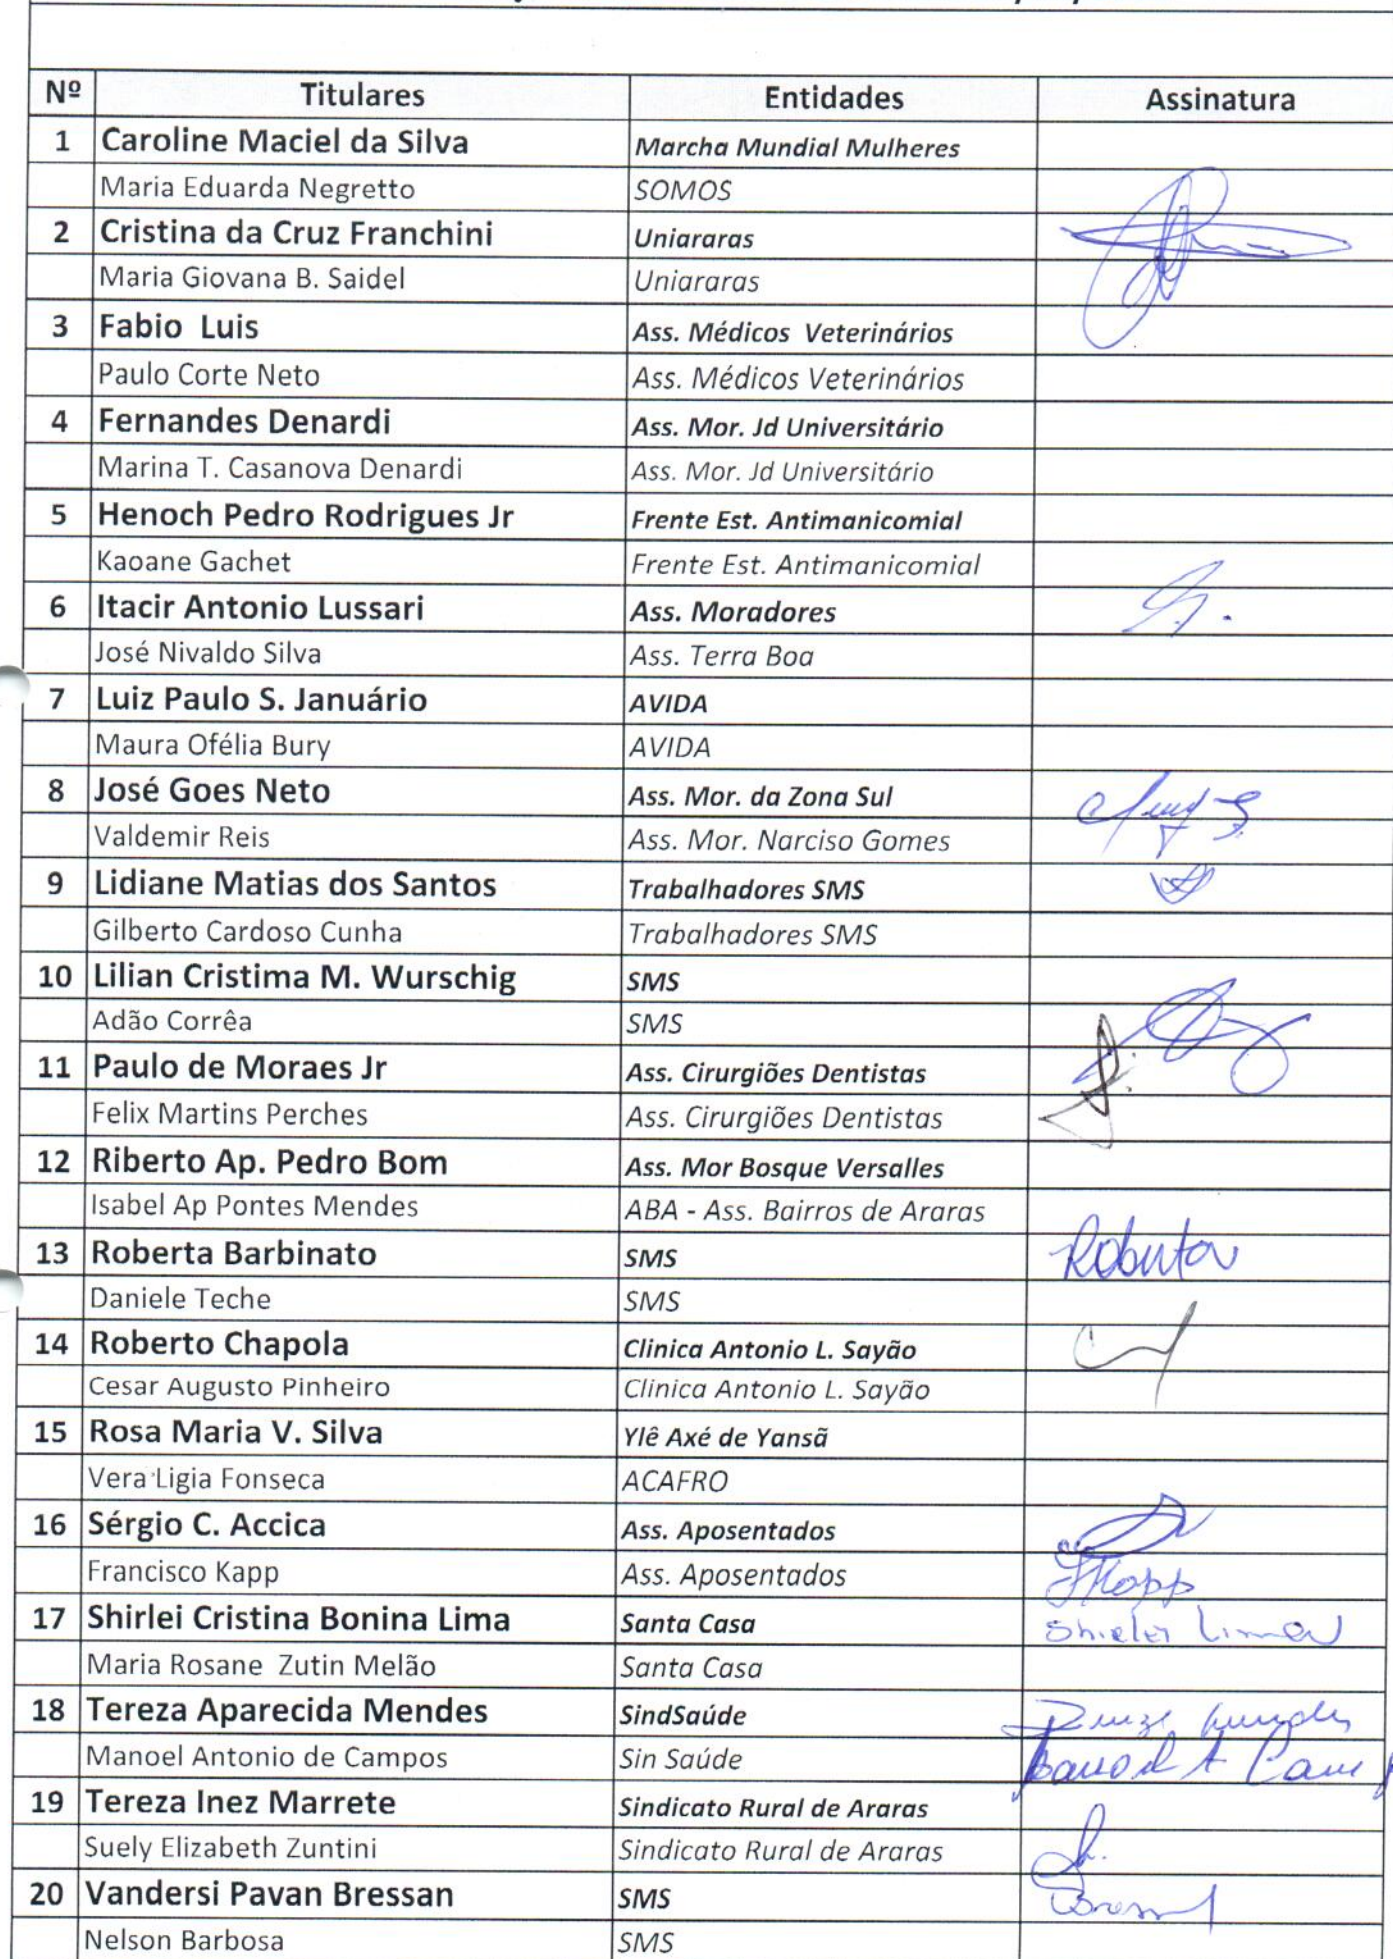 Nº Titulares Entidades Assinatura
1 Caroline Maciel da Silva Marcha Mundial Mulheres
Maria Eduarda Negretto SOMOS
2 Cristina da Cruz Franchini Uniararas
Maria Giovana B. Saidel Uniararas
3 Fabio Luis Ass. Médicos Veterinários
Paulo Corte Neto Ass. Médicos Veterinários
4 Fernandes Denardi Ass. Mor. Jd Universitário
Marina T. Casanova Denardi Ass. Mor. Jd Universitário
5 Henoch Pedro Rodrigues Jr Frente Est. Antimanicomial
Kaoane Gachet Frente Est. Antimanicomial
6 Itacir Antonio Lussari Ass. Moradores
José Nivaldo Silva Ass. Terra Boa
7 Luiz Paulo S. Januário AVIDA
Maura Ofélia Bury AVIDA
8 José Goes Neto Ass. Mor. da Zona Sul
Valdemir Reis Ass. Mor. Narciso Gomes
9 Lidiane Matias dos Santos Trabalhadores SMS
Gilberto Cardoso Cunha Trabalhadores SMS
10 Lilian Cristima M. Wurschig SMS
Adão Corrêa SMS
11 Paulo de Moraes Jr Ass. Cirurgiões Dentistas
Felix Martins Perches Ass. Cirurgiões Dentistas
12 Riberto Ap. Pedro Bom Ass. Mor Bosque Versalles
Isabel Ap Pontes Mendes ABA - Ass. Bairros de Araras
13 Roberta Barbinato SMS Roberta
Daniele Teche SMS
14 Roberto Chapola Clinica Antonio L. Sayão
Cesar Augusto Pinheiro Clinica Antonio L. Sayão
15 Rosa Maria V. Silva Ylê Axé de Yansã
Vera Ligia Fonseca ACAFRO
16 Sérgio C. Accica Ass. Aposentados
Francisco Kapp Ass. Aposentados FKapp
17 Shirlei Cristina Bonina Lima Santa Casa Shirlei Lima
Maria Rosane Zutin Melão Santa Casa
18 Tereza Aparecida Mendes SindSaúde
Manoel Antonio de Campos Sin Saúde
19 Tereza Inez Marrete Sindicato Rural de Araras
Suely Elizabeth Zuntini Sindicato Rural de Araras
20 Vandersi Pavan Bressan SMS
Nelson Barbosa SMS